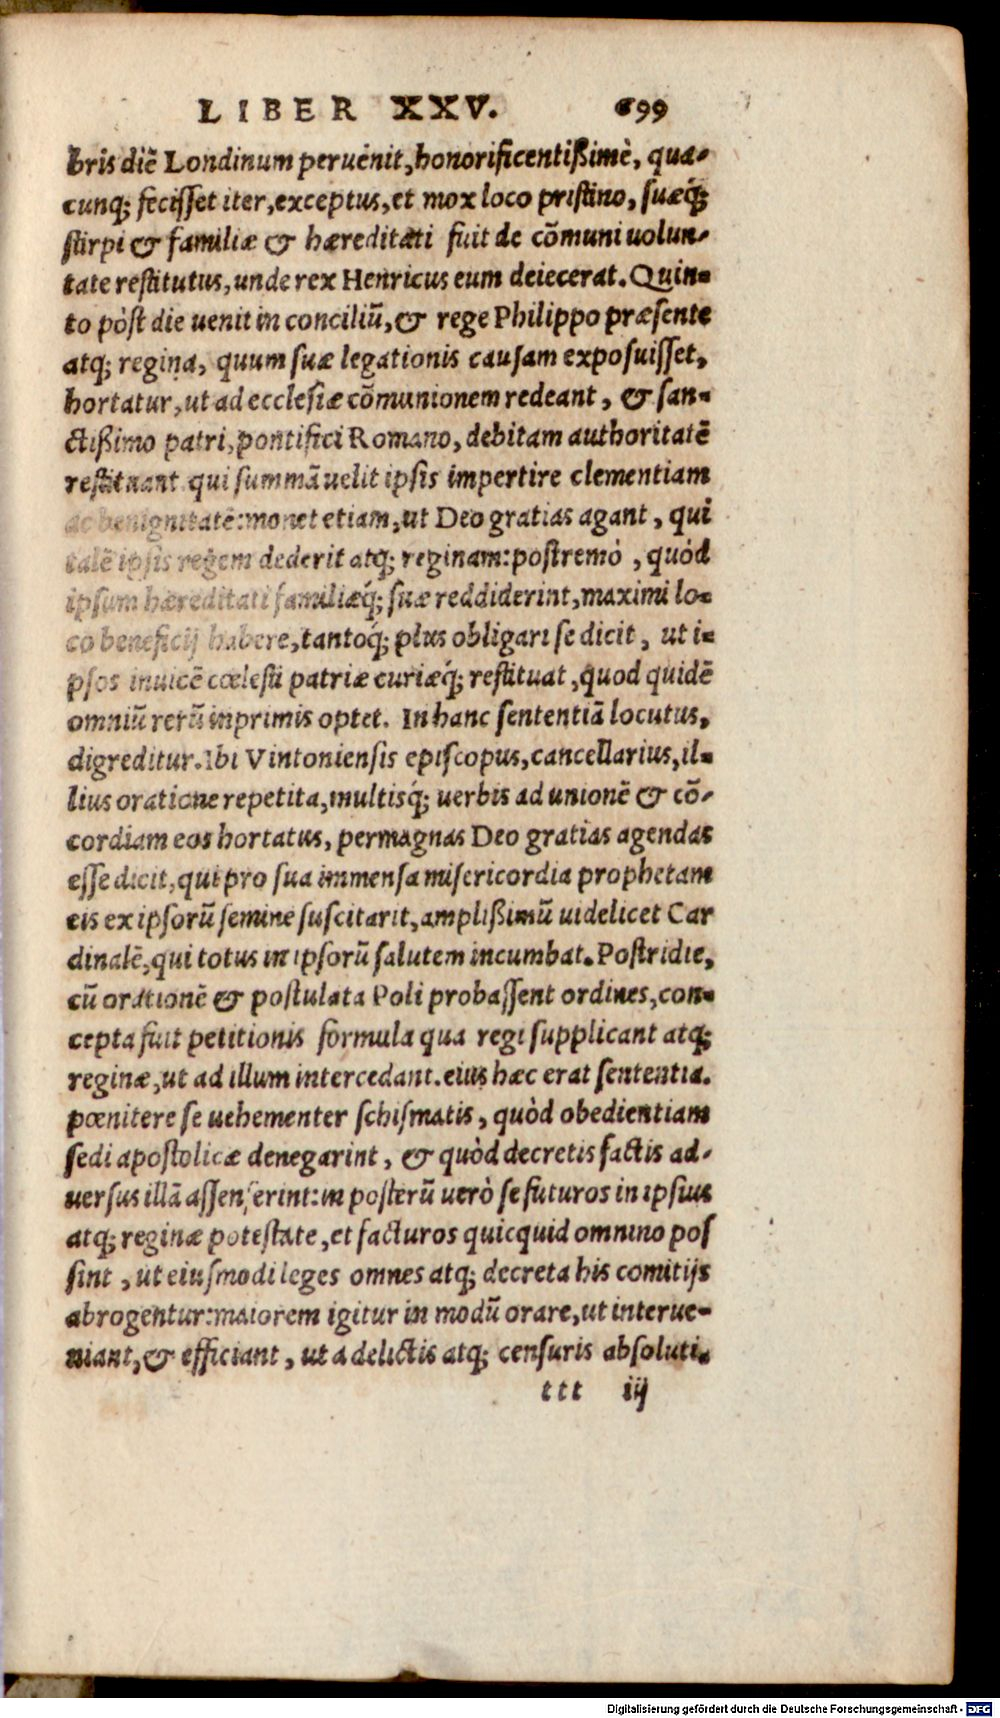 LIBER XXV. 699
bris diẽ Londinum peruênit, honorificentißimè, qua-
cunq; fecisset iter, exceptus, et mox loco pristino, suæq́;
stirpi & familiæ & hæreditati fuit de cõmuni uolun-
tate restitutus, unde rex Henricus eum deiecerat. Quin-
to pòst die uenit in conciliũ, & rege Philippo præsente
atq; regina, quum suæ legationis causam exposuisset,
hortatur, ut ad ecclesiæ cõmunionem redeant, & san-
ctißimo patri, pontifici Romano, debitam authoritatẽ
restituant qui summã uelit ipsis impertire clementiam
ac benignitatẽ: monet etiam, ut Deo gratias agant, qui
talẽ ipsis regem dederit atq; reginam: postremò, quòd
ipsum hæreditati familiæq́; suæ reddiderint, maximi lo-
co beneficij habere, tantoq́; plus obligari se dicit, ut i-
psos inuicẽ cœlesti patriæ curiæq́; restituat, quod quidẽ
omniũ rerũ inprimis optet. In hanc sententiã locutus,
digreditur. Ibi Vintoniensis episcopus, cancellarius, il-
lius oratione repetita, multisq́; uerbis ad unionẽ & cõ-
cordiam eos hortatus, permagnas Deo gratias agendas
esse dicit, qui pro sua immensa misericordia prophetam
eis ex ipsorũ semine suscitarit, amplißimũ uidelicet Car
dinalẽ, qui totus in ipsorũ salutem incumbat. Postridie,
cũ orationẽ & postulata Poli probassent ordines, con-
cepta fuit petitionis formula qua regi supplicant atq;
reginæ, ut ad illum intercedant. eius hæc erat sententia.
pœnitere se uehementer schismatis, quòd obedientiam
sedi apostolicæ denegarint, & quòd decretis factis ad-
uersus illã assenserint: in posterũ uerò se futuros in ipsius
atq; reginæ potestate, et facturos quicquid omnino pos
sint, ut eiusmodi leges omnes atq; decreta his comitijs
abrogentur: maiorem igitur in modũ orare, ut interue-
niant, & efficiant, ut a delictis atq; censuris absoluti-
ttt iij
Digitalisierung gefördert durch die Deutsche Forschungsgemeinschaft - DFG